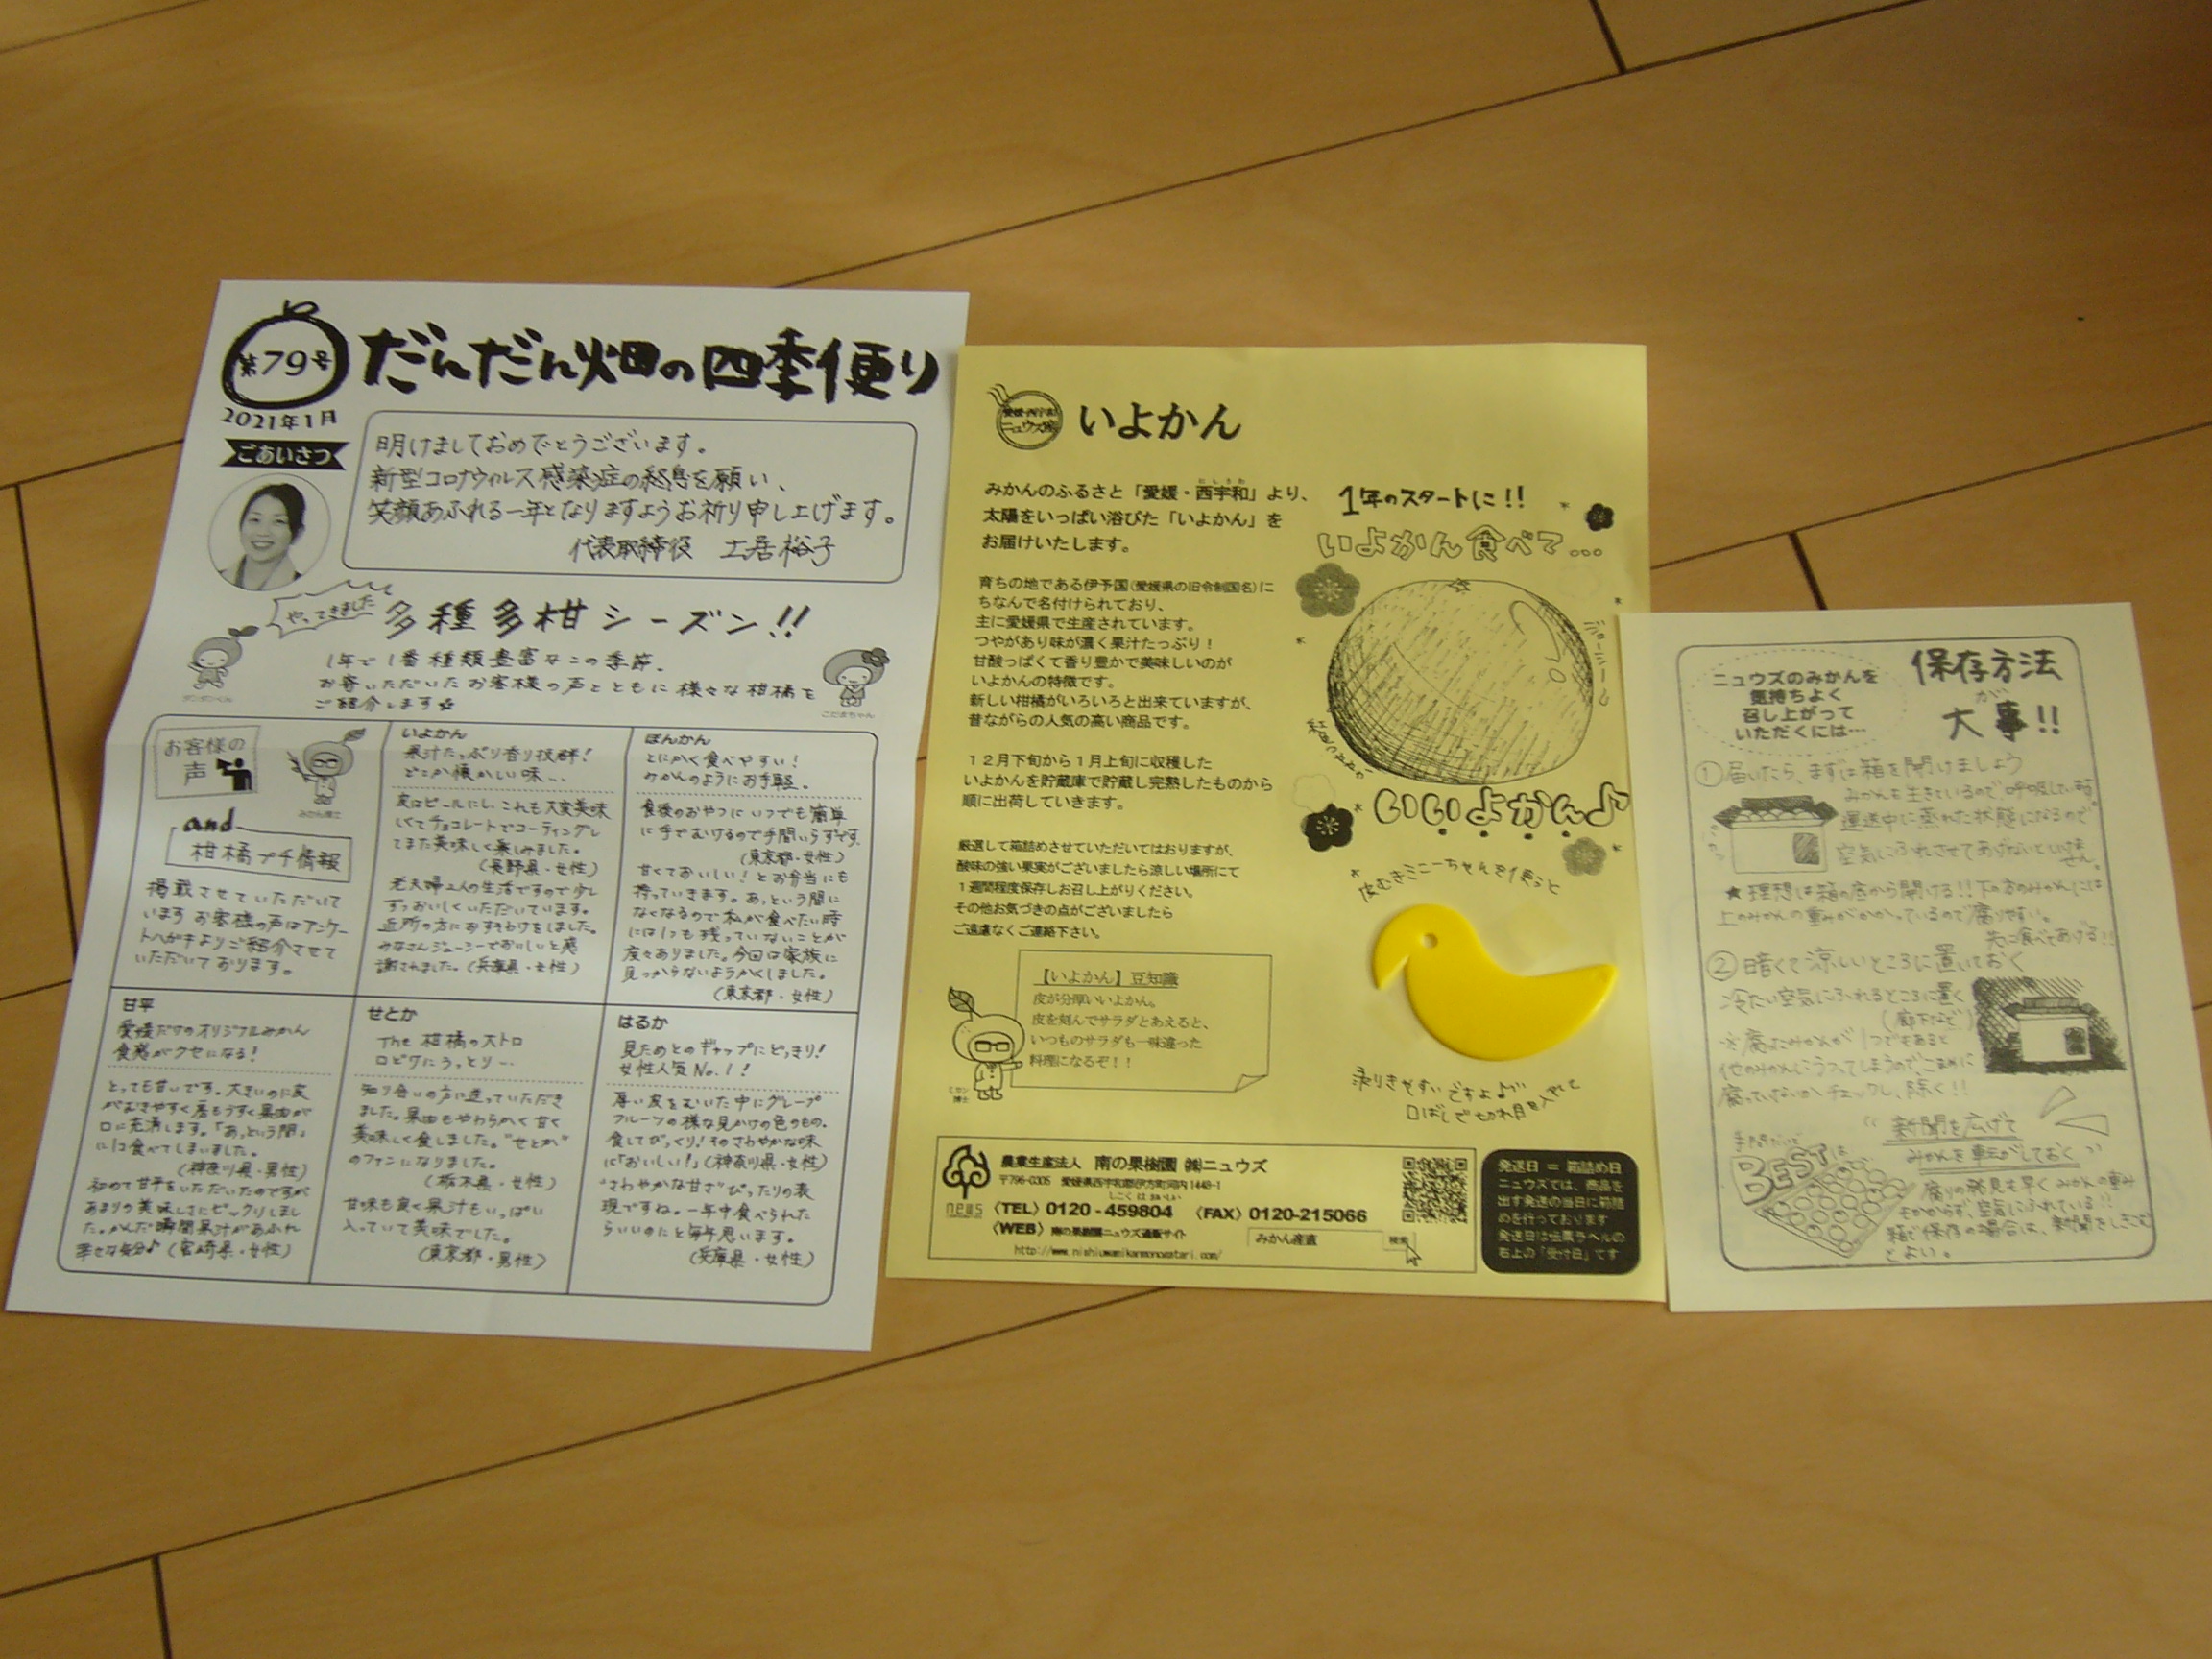 第79号
だんだん畑の四季便り
2021年1月
ごあいさつ
明けましておめでとうございます。
新型コロナウィルス感染症の終息を願い、
笑顔あふれる一年となりますようお祈り申し上げます。
代表取締役 土居裕子
やってきました
多種多柑シーズン!!
1年で1番種類豊富なこの季節。
お寄いただいたお客様の声とともに様々な柑橘を
ご紹介します☆
こだまちゃん
お客様の
声
みかん博士
and
柑橘プチ情報
掲載させていただいて
います お客様の声はアンケー
トハガキよりご紹介させて
いただいております。
いよかん
果汁たっぷり香り抜群!
どこか懐かしい味…
皮はピールにし、これも大変美味
しくてチョコレートでコーティングし
てまた美味しく楽しみました。
(長野県・女性)
老夫婦2人の生活ですので少し
ずつおいしくいただいています。
近所の方におすそわけをしました。
みなさんジューシーでおいしいと感
謝されました。(兵庫県・女性)
ぽんかん
とにかく食べやすい!
みかんのようにお手軽。
食後のおやつにいつでも簡単
に手でむけるので手間いらずです。
(東京都・女性)
甘くておいしい!とお弁当にも
持っていきます。あっという間に
なくなるので私が食べたい時
にはいつも残っていないことが
度々ありました。今回は家族に
見つからないようかくしました。
(東京都・女性)
甘平
愛媛だけのオリジナルみかん
食感がクセになる!
とっても甘いです。大きいのに皮
がむきやすく房もうすく果肉が
口に充満します。「あっという間」
に1コ食べてしまいました。
(神奈川県・男性)
初めて甘平をいただいたのですが
あまりの美味しさにビックリしまし
た。かんだ瞬間果汁があふれ
幸せな気分♪(宮崎県・女性)
せとか
The 柑橘の大トロ
口どけにうっとり…
知り合いの方に送っていただき
ました。果肉もやわらかく甘く
美味しく食しました。"せとか"
のファンになりました。
(栃木県・女性)
甘味も良く果汁もいっぱい
入っていて美味でした。
(東京都・男性)
はるか
見ためとのギャップにどっきり!
女性人気No.1!
厚い皮をむいた中にグレープ
フルーツの様な見かけの色のもの。
食してびっくり!そのさわやかな味
に「おいしい!」(神奈川県・女性)
"さわやかな甘さ"ぴったりの表
現ですね。一年中食べられた
らいいのにと毎年思います。
(兵庫県・女性)
愛媛・西宇和
ニュウズ
いよかん
みかんのふるさと「愛媛・西宇和」より、
太陽をいっぱい浴びた「いよかん」を
お届けいたします。
育ちの地である伊予国(愛媛県の旧令制国名)に
ちなんで名付けられており、
主に愛媛県で生産されています。
つやがあり味が濃く果汁たっぷり!
甘酸っぱくて香り豊かで美味しいのが
いよかんの特徴です。
新しい柑橘がいろいろと出来ていますが、
昔ながらの人気の高い商品です。
12月下旬から1月上旬に収穫した
いよかんを貯蔵庫で貯蔵し完熟したものから
順に出荷していきます。
厳選して箱詰めさせていただいてはおりますが、
酸味の強い果実がございましたら涼しい場所にて
1週間程度保存しお召し上がりください。
その他お気づきの点がございましたら
ご遠慮なくご連絡下さい。
【いよかん】豆知識
皮が分厚いいよかん。
皮を刻んでサラダとあえると、
いつものサラダも一味違った
料理になるぞ!!
1年のスタートに!!
いよかん食べて...
いいよかん♪
皮むきミニーちゃんを使うと
剥りきやすいですよ♪
口ばしで切れ目を入れて
農業生産法人 南の果樹園 ㈱ニュウズ
〒796-0305 愛媛県西宇和郡伊方町河内1449-1
news
〈TEL〉0120-459804 〈FAX〉0120-215066
〈WEB〉南の果樹園ニュウズ通販サイト
http://www.nishiuwamikanmonogatari.com/
みかん産直
検索
発送日=箱詰め日
ニュウズでは、商品を
出す発送の当日に箱詰
めを行っております
発送日は伝票ラベルの
右上の「受付日」です
ニュウズのみかんを
気持ちよく
召し上がって
いただくには…
保存方法
が
大事!!
①届いたら、まずは箱を開けましょう
みかんも生きているので呼吸している
運送中に蒸れた状態になるので
空気にふれさせてあげないといけません。
★理想は箱の底から開ける!!下の方のみかんには
上のみかんの重みがかかっているので腐りやすい。
先に食べてあげる!!
②暗くて涼しいところに置いておく
冷たい空気にふれるところに置く
(廊下など)
※腐ったみかんが1つでもあると
他のみかんにうつってしまうので、こまめに
腐っていないかチェックし、除く!!
BESTは
"新聞を広げて
みかんを転がしておく"
腐りの発見も早くみかんの重み
もかからず、空気にふれている!!
箱で保存の場合は、新聞をしきこむ
とよい。